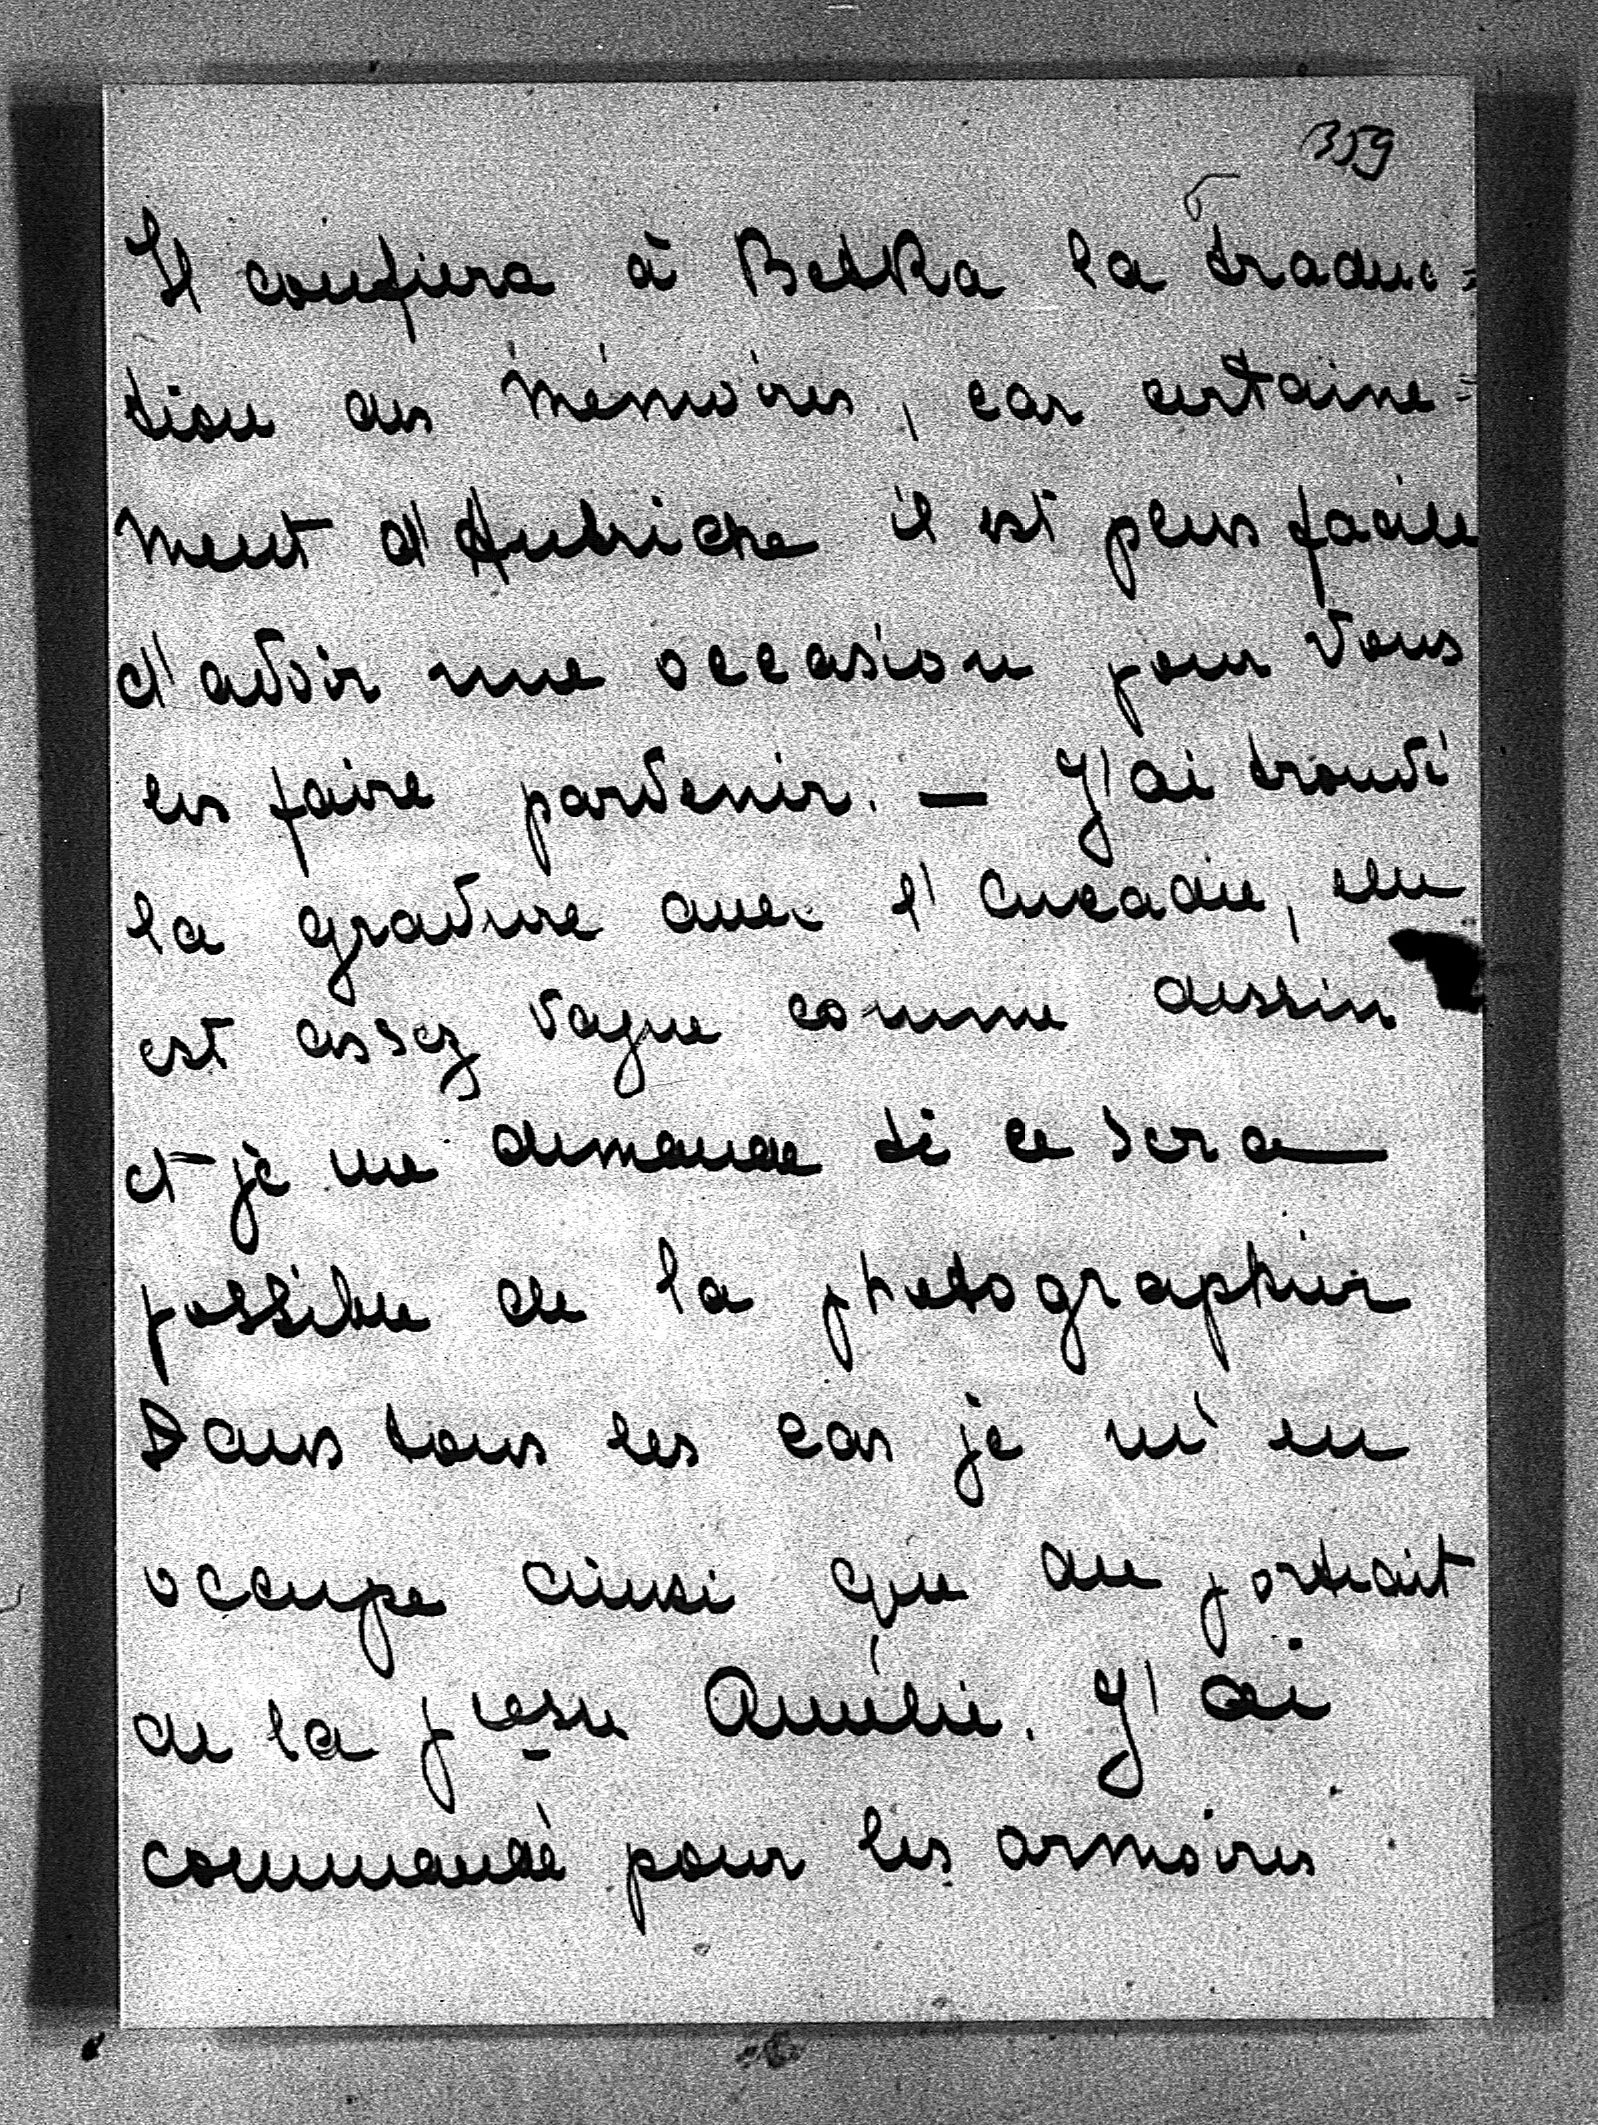 359
Il confiera à Betka la traduc=
tion des Mémoires, car certaine=
ment d'Autriche il est plus facile
d'avoir une occasion pour Vous
les faire parvenir. — J'ai trouvé
la gravure avec l'Arcadie, elle
est assez vague comme dessin
et je me demande si ce sera
possible de la photographier
Dans tous les cas je m'en
occupe ainsi que du portrait
de la pcesse Amélie. J'ai
commandé pour les armoires